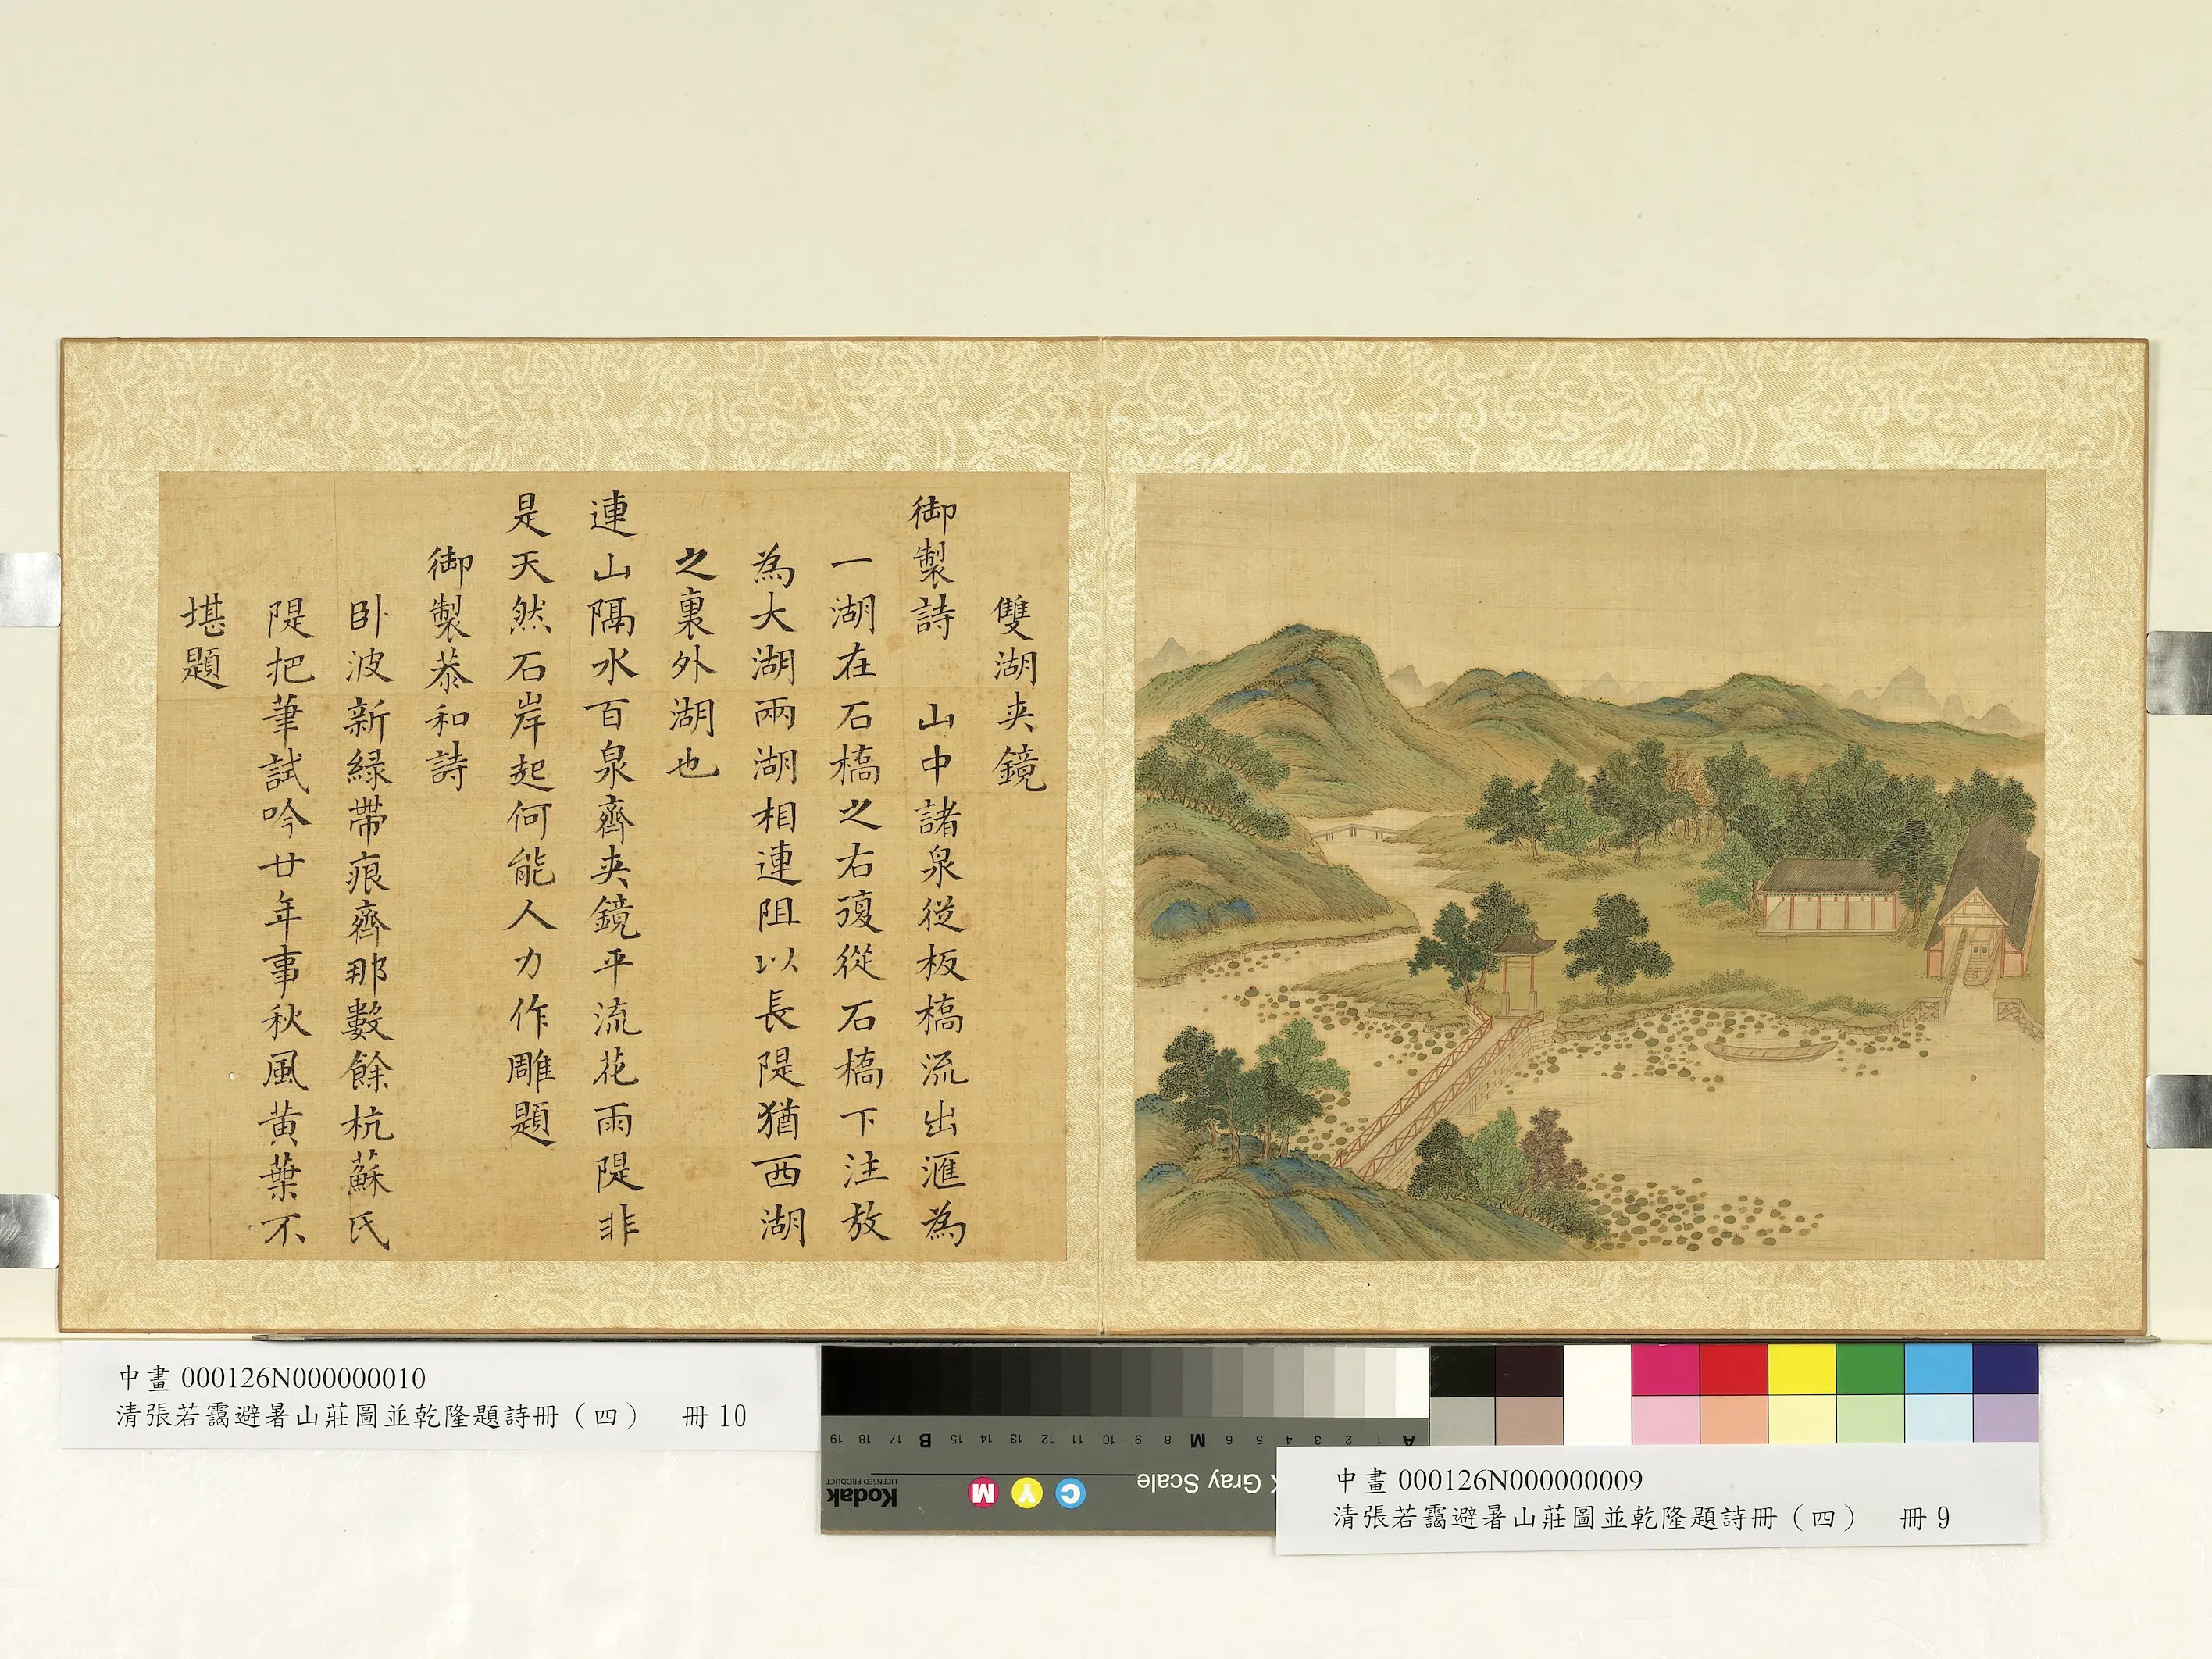 雙湖夾鏡
御製詩 山中諸泉從板橋流出滙為
一湖在石橋之右復從石橋下注放
為大湖兩湖相連阻以長隄猶西湖
之裏外湖也
連山隔水百泉齊夾鏡平流花雨隄非
是天然石岸起何能人力作雕題
御製恭和詩
卧波新綠帶痕齊那數餘杭蘇氏
隄把筆試吟廿年事秋風黃葉不
堪題
中畫 000126N000000010
清張若靄避暑山莊圖並乾隆題詩冊(四) 冊 10
A 1 2 3 4 5 6 M 8 9 10 11 12 13 14 15 B 17 18 19
Gray Scale
C Y M
Kodak
LICENSED PRODUCT
中畫 000126N000000009
清張若靄避暑山莊圖並乾隆題詩冊(四) 冊 9